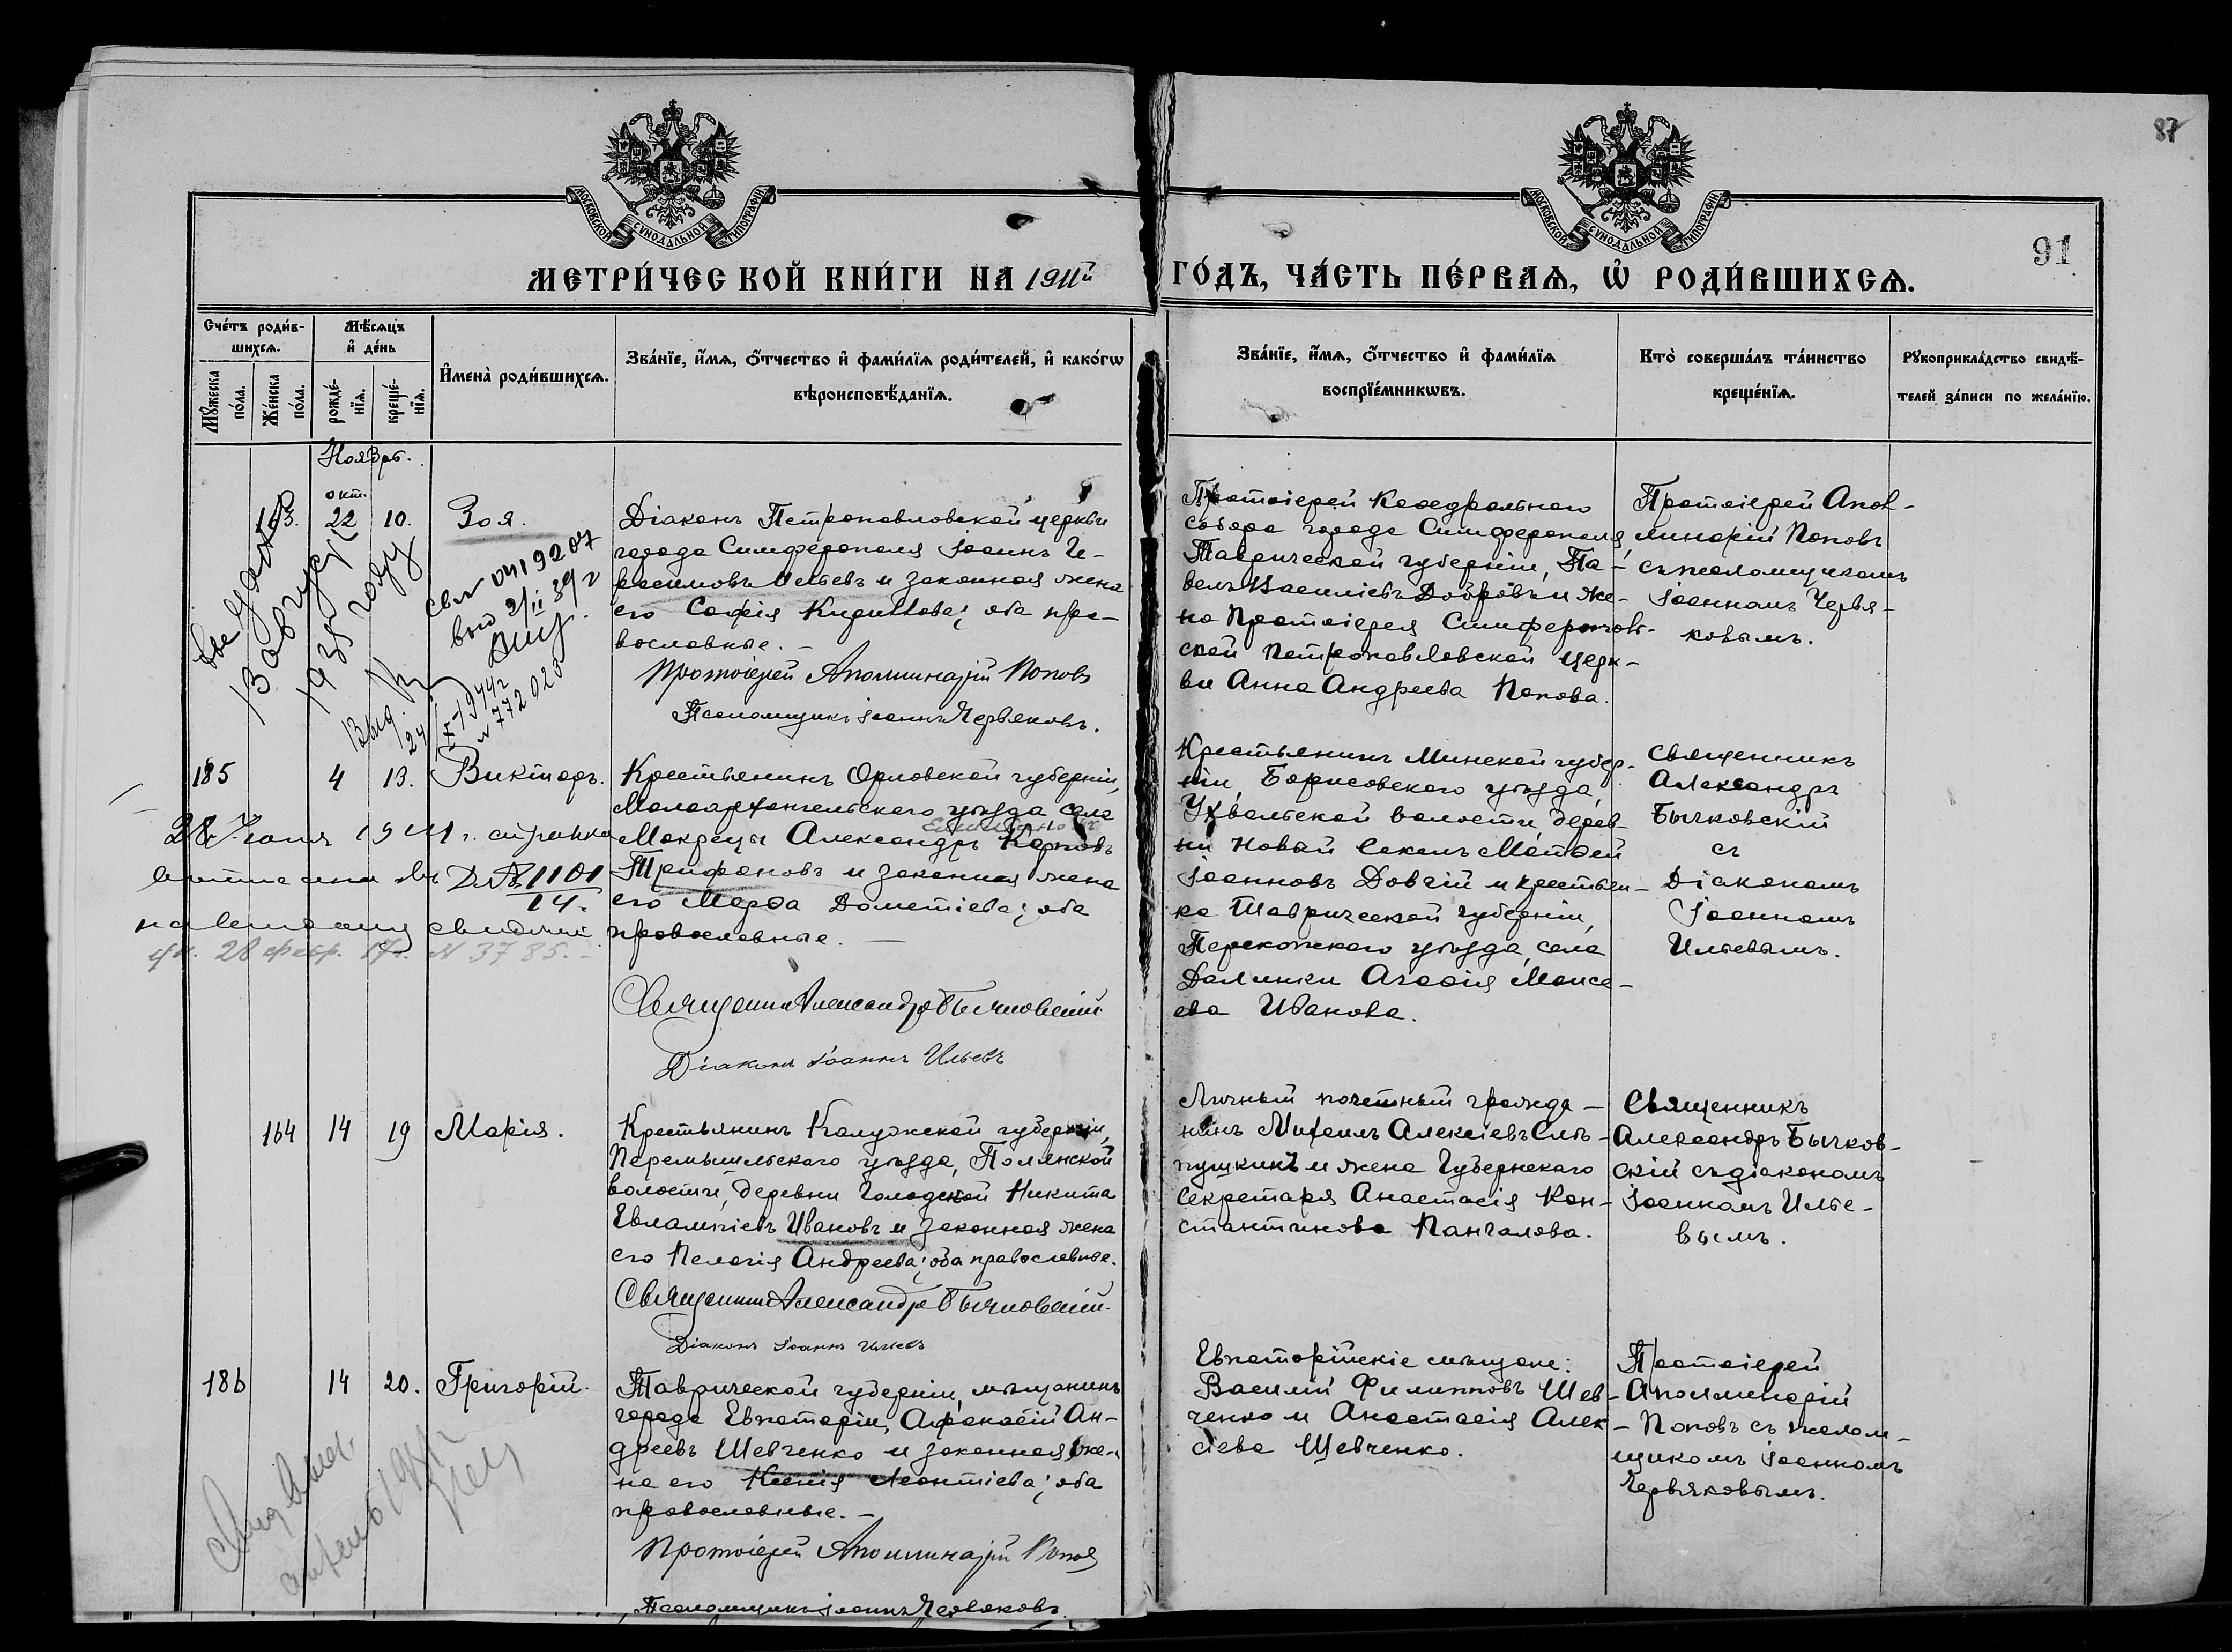 87
91
МОСКОВСКОЙ СѴНОДАЛЬНОЙ ТИПОГРАФІИ
МОСКОВСКОЙ СѴНОДАЛЬНОЙ ТИПОГРАФІИ
МЕТРИ́ЧЕСКОЙ КНИ́ГИ НА 1911й ГО́ДЪ, ЧА́СТЬ ПЕ́РВАѦ, Ѿ РОДИ́ВШИХСѦ.
Сче́тъ роди́в-
шихсѧ.
Мѹ́жеска по́ла.
Же́нска по́ла.
Мѣ́сѧцъ
и҆ де́нь
рожде́-
нїѧ.
креще́-
нїѧ.
И҆мена̀ роди́вшихсѧ.
Зва́нїе, и҆́мѧ, ѻ҆́тчество и҆ фами́лїѧ роди́телей, и҆ како́гѡ
вѣроисповѣ́данїѧ.
Зва́нїе, и҆́мѧ, ѻ҆́тчество и҆ фами́лїѧ
воспрїе́мникѡвъ.
Кто̀ соверша́лъ та́инство
креще́нїѧ.
Рѹкоприкла́дство свидѣ́-
телей за́писи по жела́нїю.
Ноябрь.
163.
окт.
22
10.
Зоя.
Діаконъ Петропавловской церкви
города Симферополя Іоаннъ Ге-
расимовъ Ильевъ и законная жена
его Софія Кириллова; оба пра-
вославные. –
Протоіерей Аполлинарій Поповъ
Псаломщикъ Іоаннъ Червяковъ.
Протоіерей Каѳедральнаго
собора города Симферополя,
Таврической губерніи, Па-
велъ Васильевъ Добровъ и же-
на Протоіерея Симферополь-
ской Петропавловской церк-
ви Анна Андреева Попова.
Протоіерей Апол-
линарій Поповъ
съ псаломщикомъ
Іоанномъ Червя-
ковымъ.
13 августа
1935 году
выд 2/II 39 г
24/IX-1944 г
№ 772020
185
4
13.
Викторъ.
Крестьянинъ Орловской губерніи,
Малоархангельскаго уѣзда села
Мокреца Александръ Карповъ
Трифоновъ и законная жена
его Марѳа Дометіева; оба
православные. –
Священникъ Александръ Бычковскій
Діаконъ Іоаннъ Ильевъ
Крестьянинъ Минской губер-
ніи, Борисовскаго уѣзда,
Ухвальской волости, дерев-
ни Новый Соколъ Матѳей
Іоанновъ Довгій и крестьян-
ка Таврической губерніи,
Перекопскаго уѣзда, села
Далинки Агаѳія Моисе-
ева Иванова.
Священникъ
Александръ
Бычковскій
съ
Діакономъ
Іоанномъ
Ильевымъ.
28 Іюня 1914 г. справка
1101
14.
28 февр. 17 г. № 3785. –
164
14
19
Марія.
Крестьянинъ Калужской губерніи,
Перемышльскаго уѣзда, Полянской
волости, деревни Голодской Никита
Евлампіевъ Ивановъ и законная жена
его Пелагія Андреева; оба православные.
Священникъ Александръ Бычковскій.
Діаконъ Іоаннъ Ильевъ
Личный почетный гражда-
нинъ Михаилъ Алексіевъ Слѣ-
пушкинъ и жена Губернскаго
Секретаря Анастасія Кон-
стантинова Панчалова.
Священникъ
Александръ Бычков-
скій съ діакономъ
Іоанномъ Илье-
вымъ.
186
14
20.
Григорій.
Таврической губерніи, мѣщанинъ
города Евпаторіи, Афанасій Ан-
дреевъ Шевченко и законная же-
на его Ксенія Леонтіева; оба
православные. –
Протоіерей Аполлинарій Поповъ
Псаломщикъ Іоаннъ Червяковъ.
Евпаторійскіе мѣщане:
Василій Филипповъ Шев-
ченко и Анастасія Алек-
сіева Шевченко.
Протоіерей
Аполлинарій
Поповъ съ псалом-
щикомъ Іоанномъ
Червяковымъ.